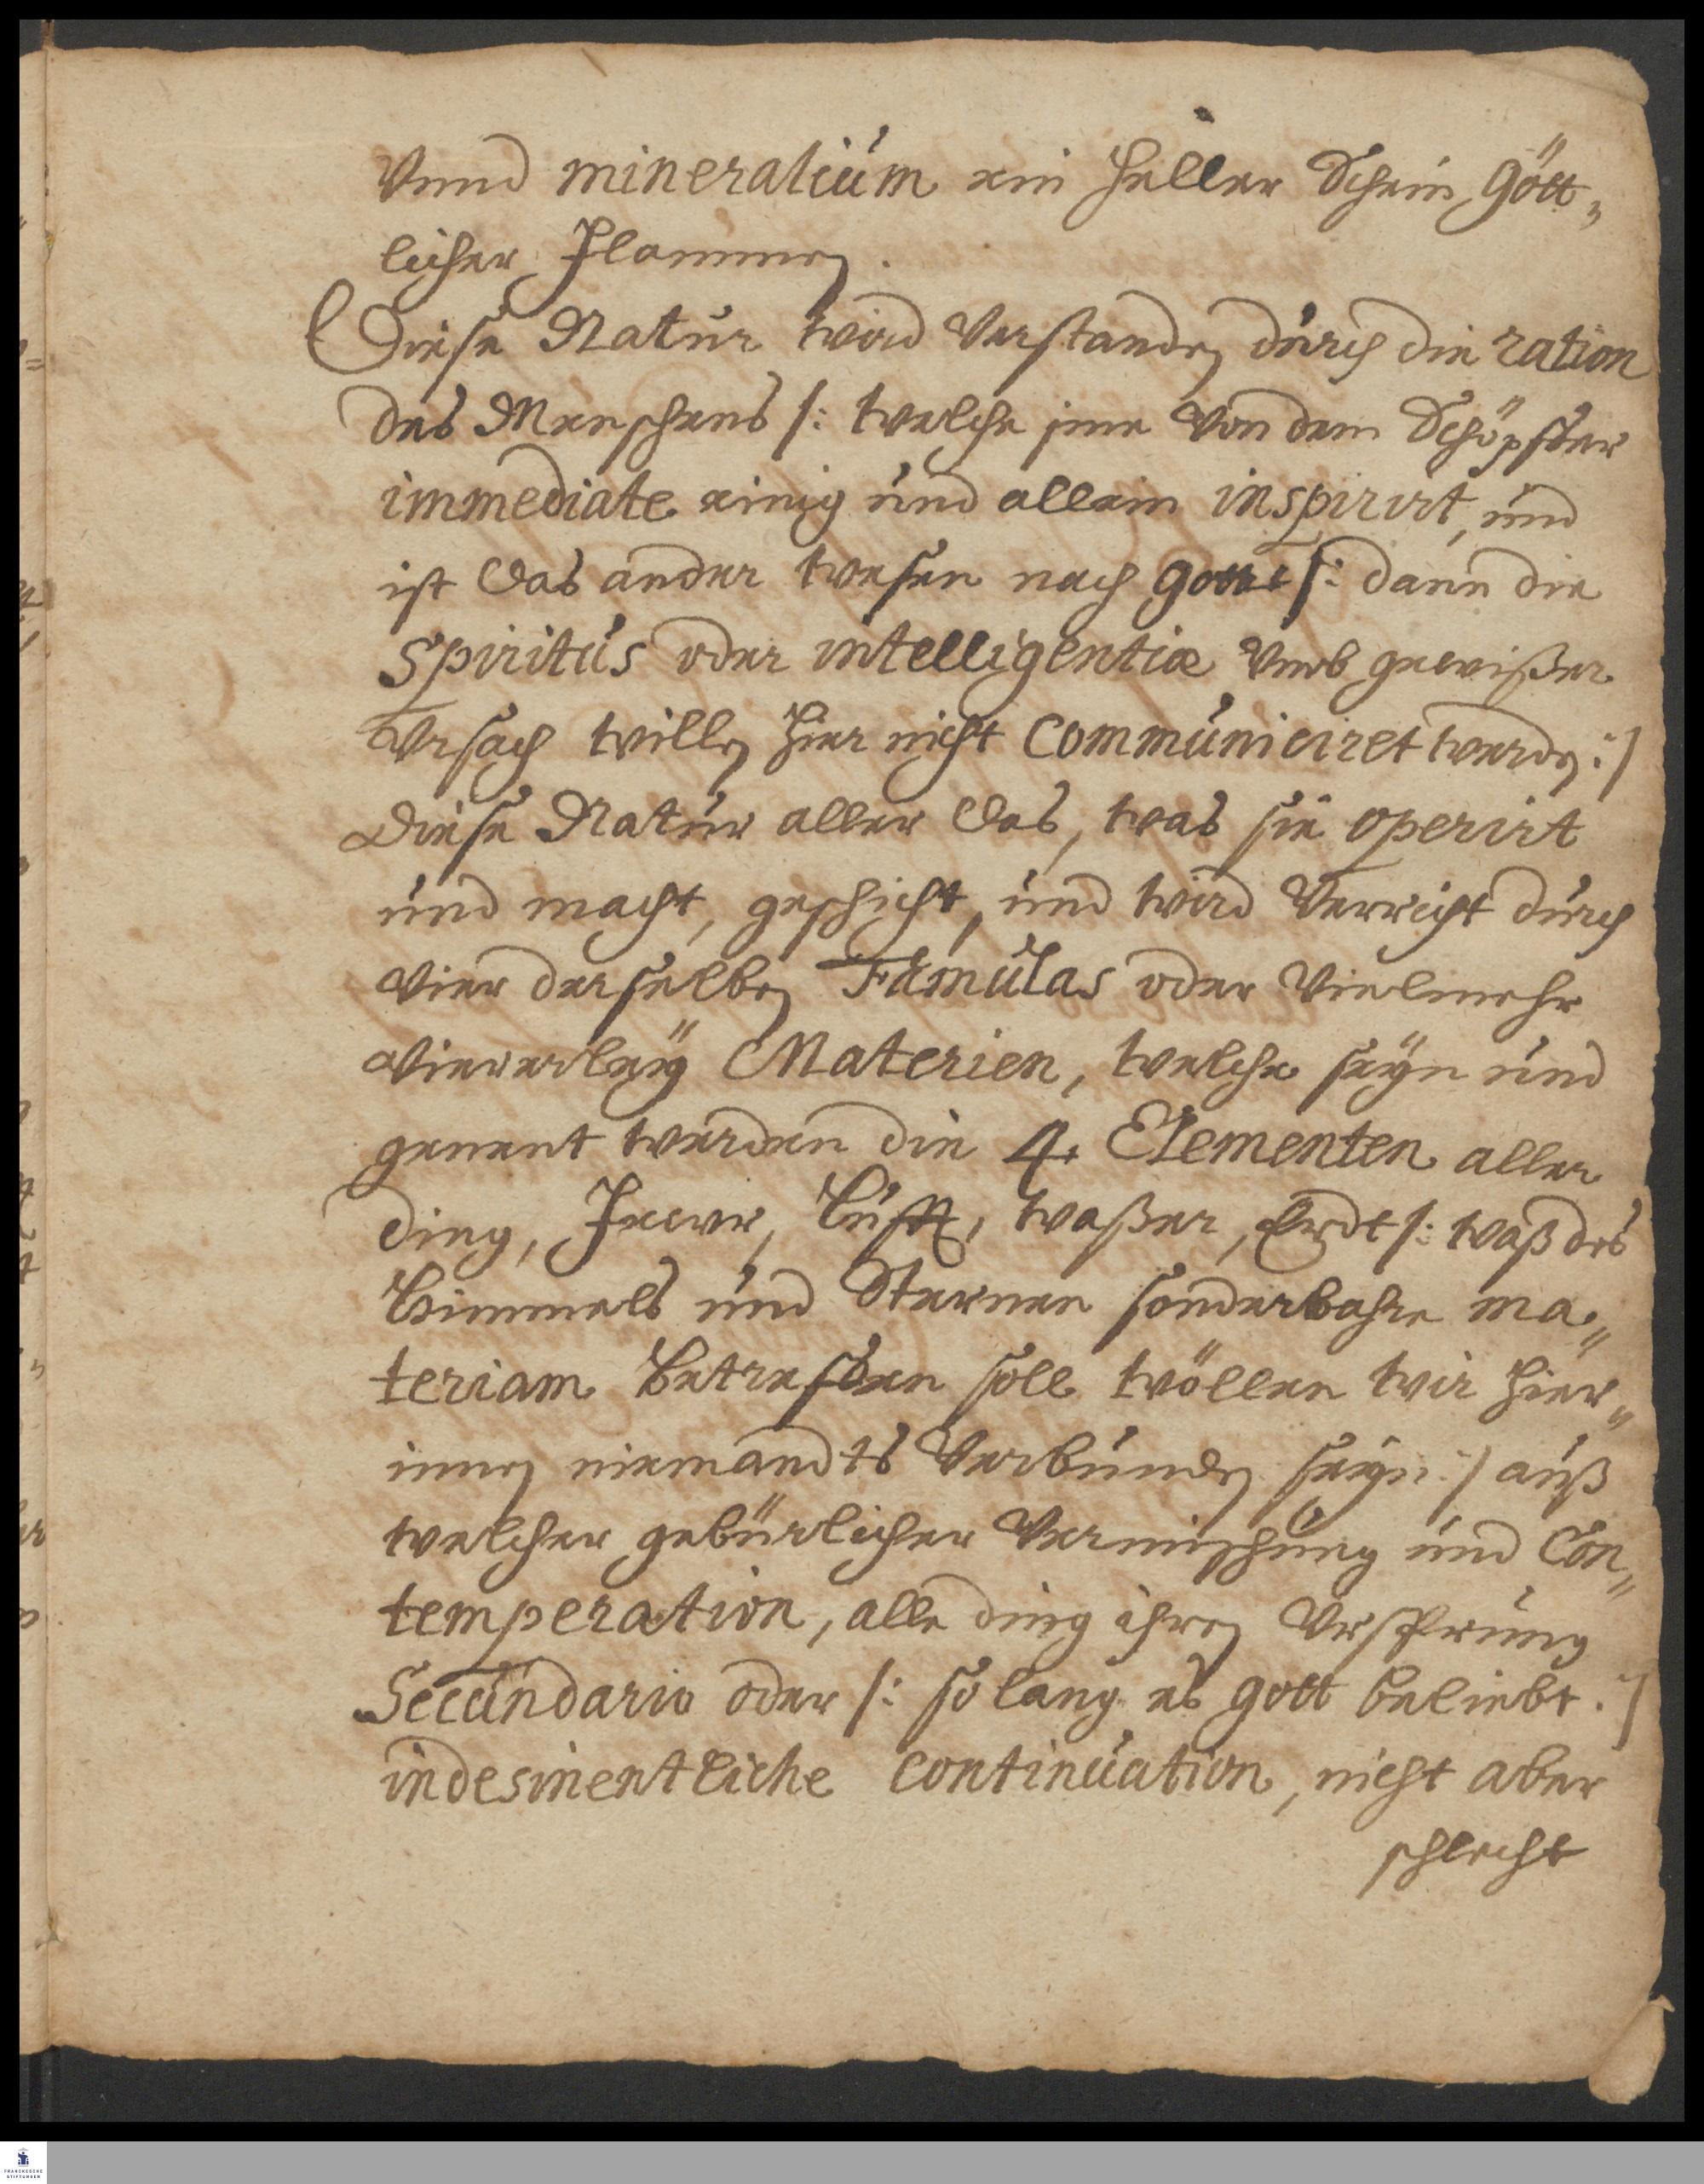 Vnnd mineralium ein heller Schein Gött„
licher Flammen.
Diese Natur wird Verstanden durch die ration
des Menschens /: welche jme Von dem Schöpffer
immediate einig und allein inspirirt, und
ist das ander wesen nach Gott /: dann die
Spiritus oder intelligentiæ Vmb gewißer
Vrsach willen hier nicht Communiciret werden :/
Diese Natur aller das, was sie operirt
und macht, geschicht, und wird Verricht durch
Vier derselben Famulas oder Vielmehr
Viererleÿ Materien, welche seÿn und
genent werden die 4. Elementen aller
ding, Fewr, Lufft, waßer, Erdt /: waß des
Himmels und Sternen sonderbahre ma„
teriam betreffen soll wöllen wir hier„
innen niemandts Verbunden seÿn :/ auß
welcher gebürlicher Vermischung und Con„
temperation, alle ding ihren Vrsprung
Secundario oder /: so lang es Gott beliebt :/
indesinentliche Continuation, nicht aber
schlecht
FRANCKESCHE
STIFTUNGEN